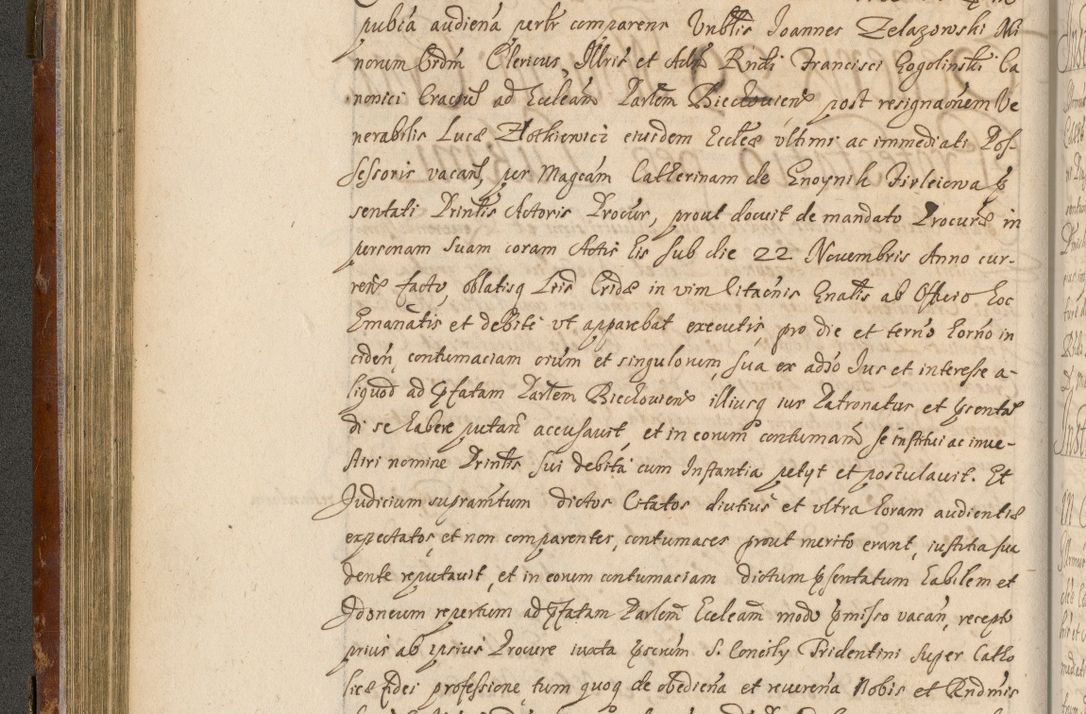 pubca audiena pertr comparens Vnblis Ioannes Zelazowski Mi
norum Ordm Clericus, Illris et Adm Rndi Francisci Gogolinski Ca
nonici Cracoū ad Eccleam Parlem Bieckouien post resignacnem Ve
nerabilis Lucæ Złotkiewicz eiusdem Eccleæ vltimi ac immediati Pos-
sessoris vacan, per Magcam Catherinam de Firleiewa p
sentati Prinlis Actoris Procur, prout docuit de mandato Procuræ in
personam suam coram Actis his sub die 22 Nouembris Anno cur-
ren facto, oblatisq Lris Cridæ in vim Citacnis Gnalis ab Officio hoc
Emanatis et debite vt apparebat executis, pro die et termo horno in
ciden, contumaciam oium et singulorum, sua ex adso Ius et interesse a-
liquod ad pfatam Parlem Bieckouien illiusq ius Patronatus et psentan
di se habere putan accusauit, et in eorum contumam se institui ac inue-
stiri nomine Prinlis sui debita cum Instantia petyt et postulauit. Et
Judicium supramtum dictos Citatos diutius et vltra horam audientiæ
expectatos, et non comparentes, contumaces prout merito erant, iustitia sua
dente reputauit, et in eorum contumaciam dictum psentatum habilem et
Idoneum repertum ad pfatam Parlem Eccleam modo pmisso vacan, recepto
prius ab ipsius Procure iuxta pscrum S. Concily Tridentini super Catho
licæ fidei professione, tum quoq de obediena et reuerena Nobis et Rndmis